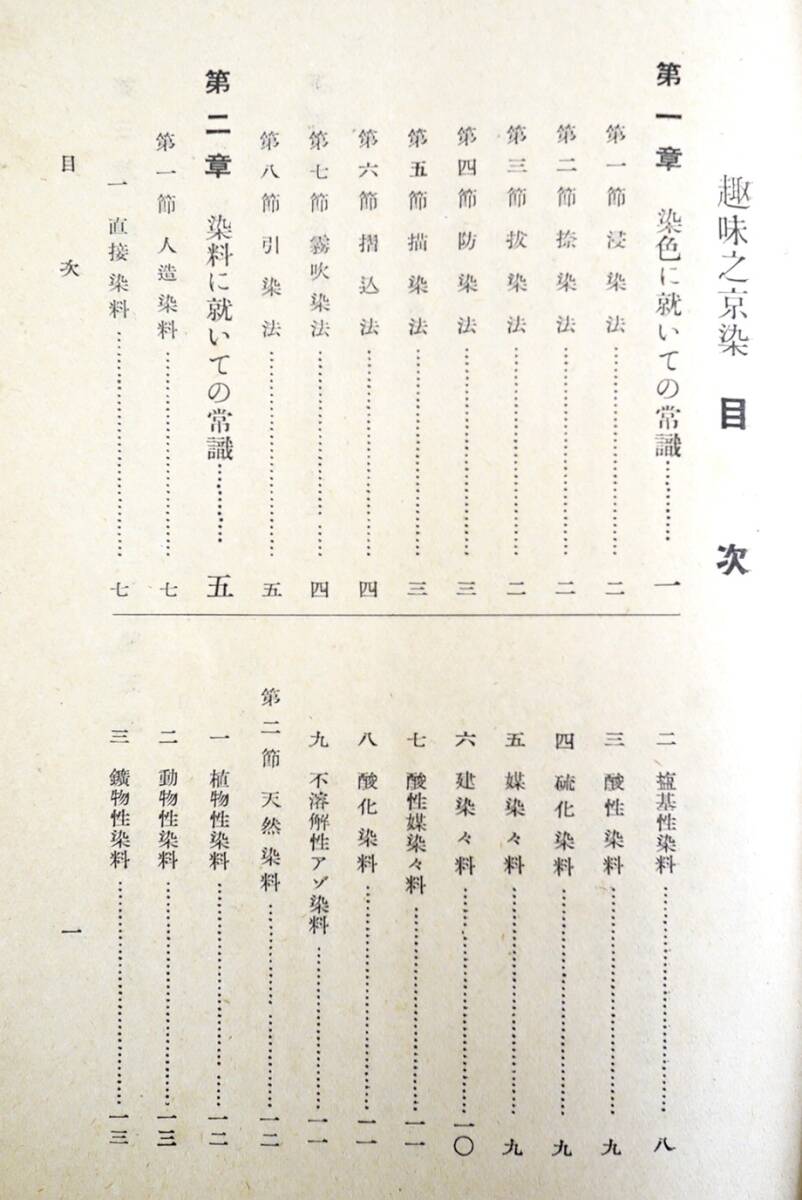 趣味之京染 目次
第一章 染色に就いての常識…………一
第一節 浸染法…………二
第二節 捺染法…………二
第三節 拔染法…………二
第四節 防染法…………三
第五節 描染法…………三
第六節 摺込法…………四
第七節 霧吹染法…………四
第八節 引染法…………五
第二章 染料に就いての常識…………五
第一節 人造染料…………七
一 直接染料…………七
二 塩基性染料…………八
三 酸性染料…………九
四 硫化染料…………九
五 媒染々料…………九
六 建染々料…………一〇
七 酸性媒染々料…………一一
八 酸化染料…………一一
九 不溶解性アゾ染料…………一一
第二節 天然染料…………一二
一 植物性染料…………一二
二 動物性染料…………一三
三 鑛物性染料…………一三
目次 一